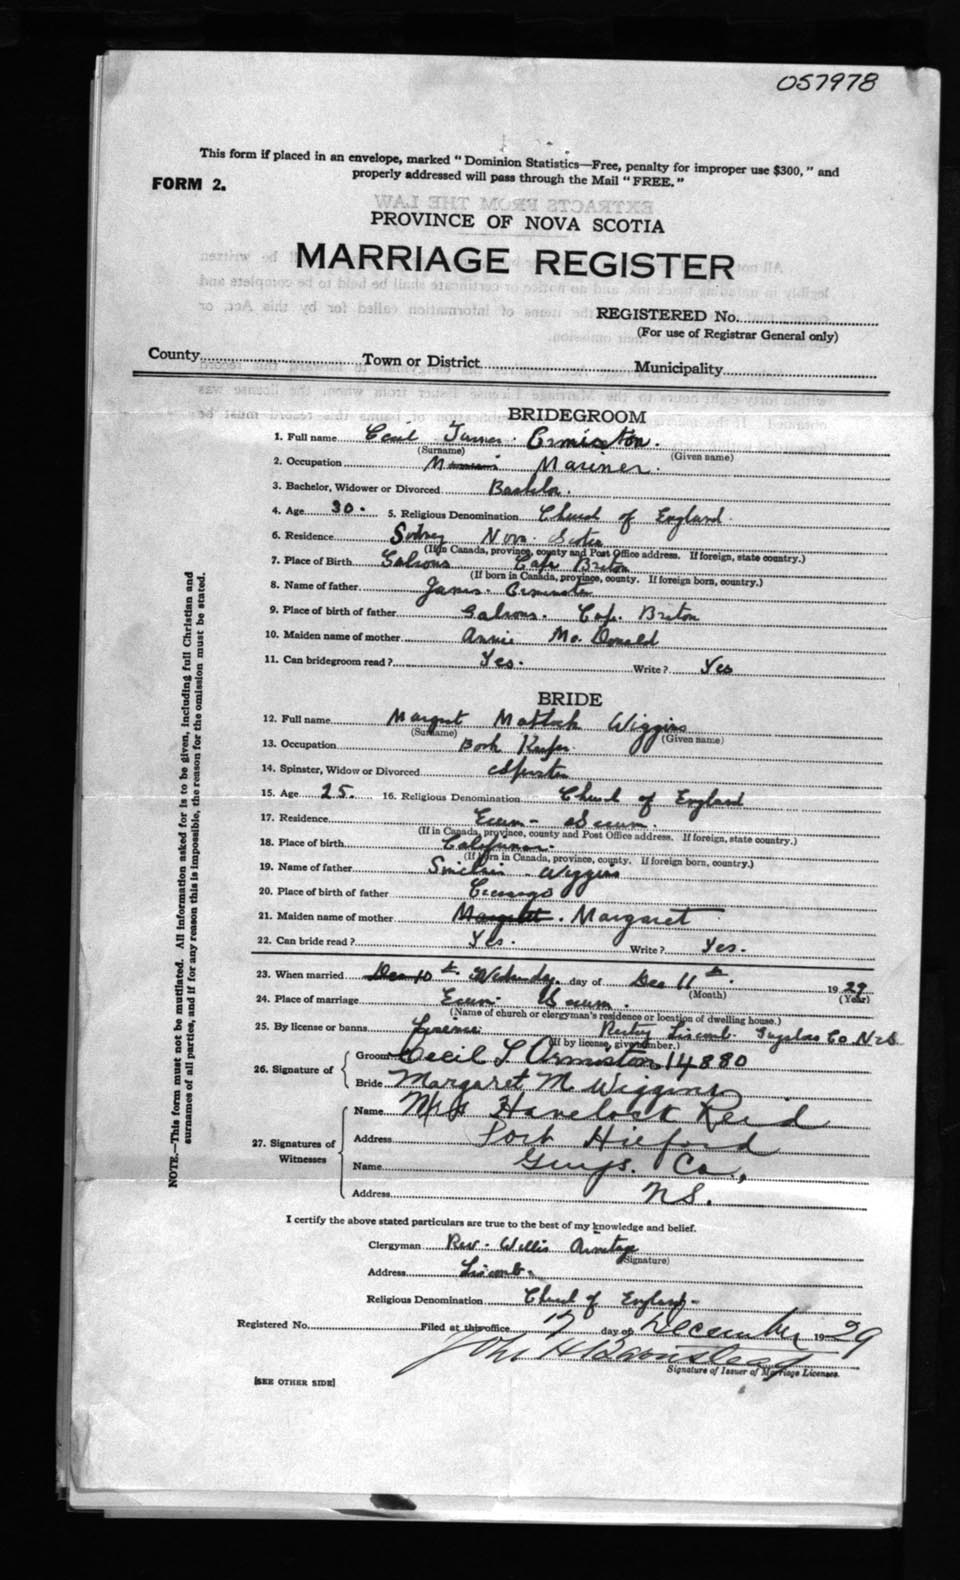 057978
This form if placed in an envelope, marked "Dominion Statistics—Free, penalty for improper use $300," and
properly addressed will pass through the Mail "FREE."
FORM 2.
PROVINCE OF NOVA SCOTIA
MARRIAGE REGISTER
REGISTERED No.
(For use of Registrar General only)
County Town or District Municipality
BRIDEGROOM
1. Full name Cecil Turner Ormiston.
(Surname) (Given name)
2. Occupation Mariner.
3. Bachelor, Widower or Divorced Bachelor.
4. Age 30. 5. Religious Denomination Church of England.
6. Residence Sydney Nova Scotia
(If in Canada, province, county and Post Office address. If foreign, state country.)
7. Place of Birth Cape Breton
(If born in Canada, province, county. If foreign born, country.)
8. Name of father James Orminston
9. Place of birth of father Cape Breton
10. Maiden name of mother Annie Mc Donald
11. Can bridegroom read? Yes. Write? Yes
BRIDE
12. Full name Margret Wiggins
(Surname) (Given name)
13. Occupation Book Keeper.
14. Spinster, Widow or Divorced Spinster
15. Age 25. 16. Religious Denomination Church of England
17. Residence Ecum - Secum.
(If in Canada, province, county and Post Office address. If foreign, state country.)
18. Place of birth California.
(If born in Canada, province, county. If foreign born, country.)
19. Name of father Sinclair Wiggins
20. Place of birth of father
21. Maiden name of mother Margaret
22. Can bride read? Yes. Write? Yes.
23. When married Dec 10th Wednesday. day of Dec 11th. 1929
(Month) (Year)
24. Place of marriage Ecum Secum.
(Name of church or clergyman's residence or location of dwelling house.)
25. By license or banns License Rectory Liscomb. Guysboro Co N.S.
(If by license, give number.)
26. Signature of Groom Cecil T Ormiston 14880
Bride Margaret M Wiggins
27. Signatures of Witnesses Name Mrs Havelock Reid
Address Port Hilford
Name Guys. Co.,
Address N.S.
I certify the above stated particulars are true to the best of my knowledge and belief.
Clergyman Rev. Willis Armitage
(Signature)
Address Liscomb.
Religious Denomination Church of England.
Registered No. Filed at this office 17 day of December 1929
John H Barnstead
Signature of Issuer of Marriage Licenses.
[SEE OTHER SIDE]
NOTE.—This form must not be mutilated. All information asked for is to be given, including full Christian and
surnames of all parties, and if for any reason this is impossible, the reason for the omission must be stated.